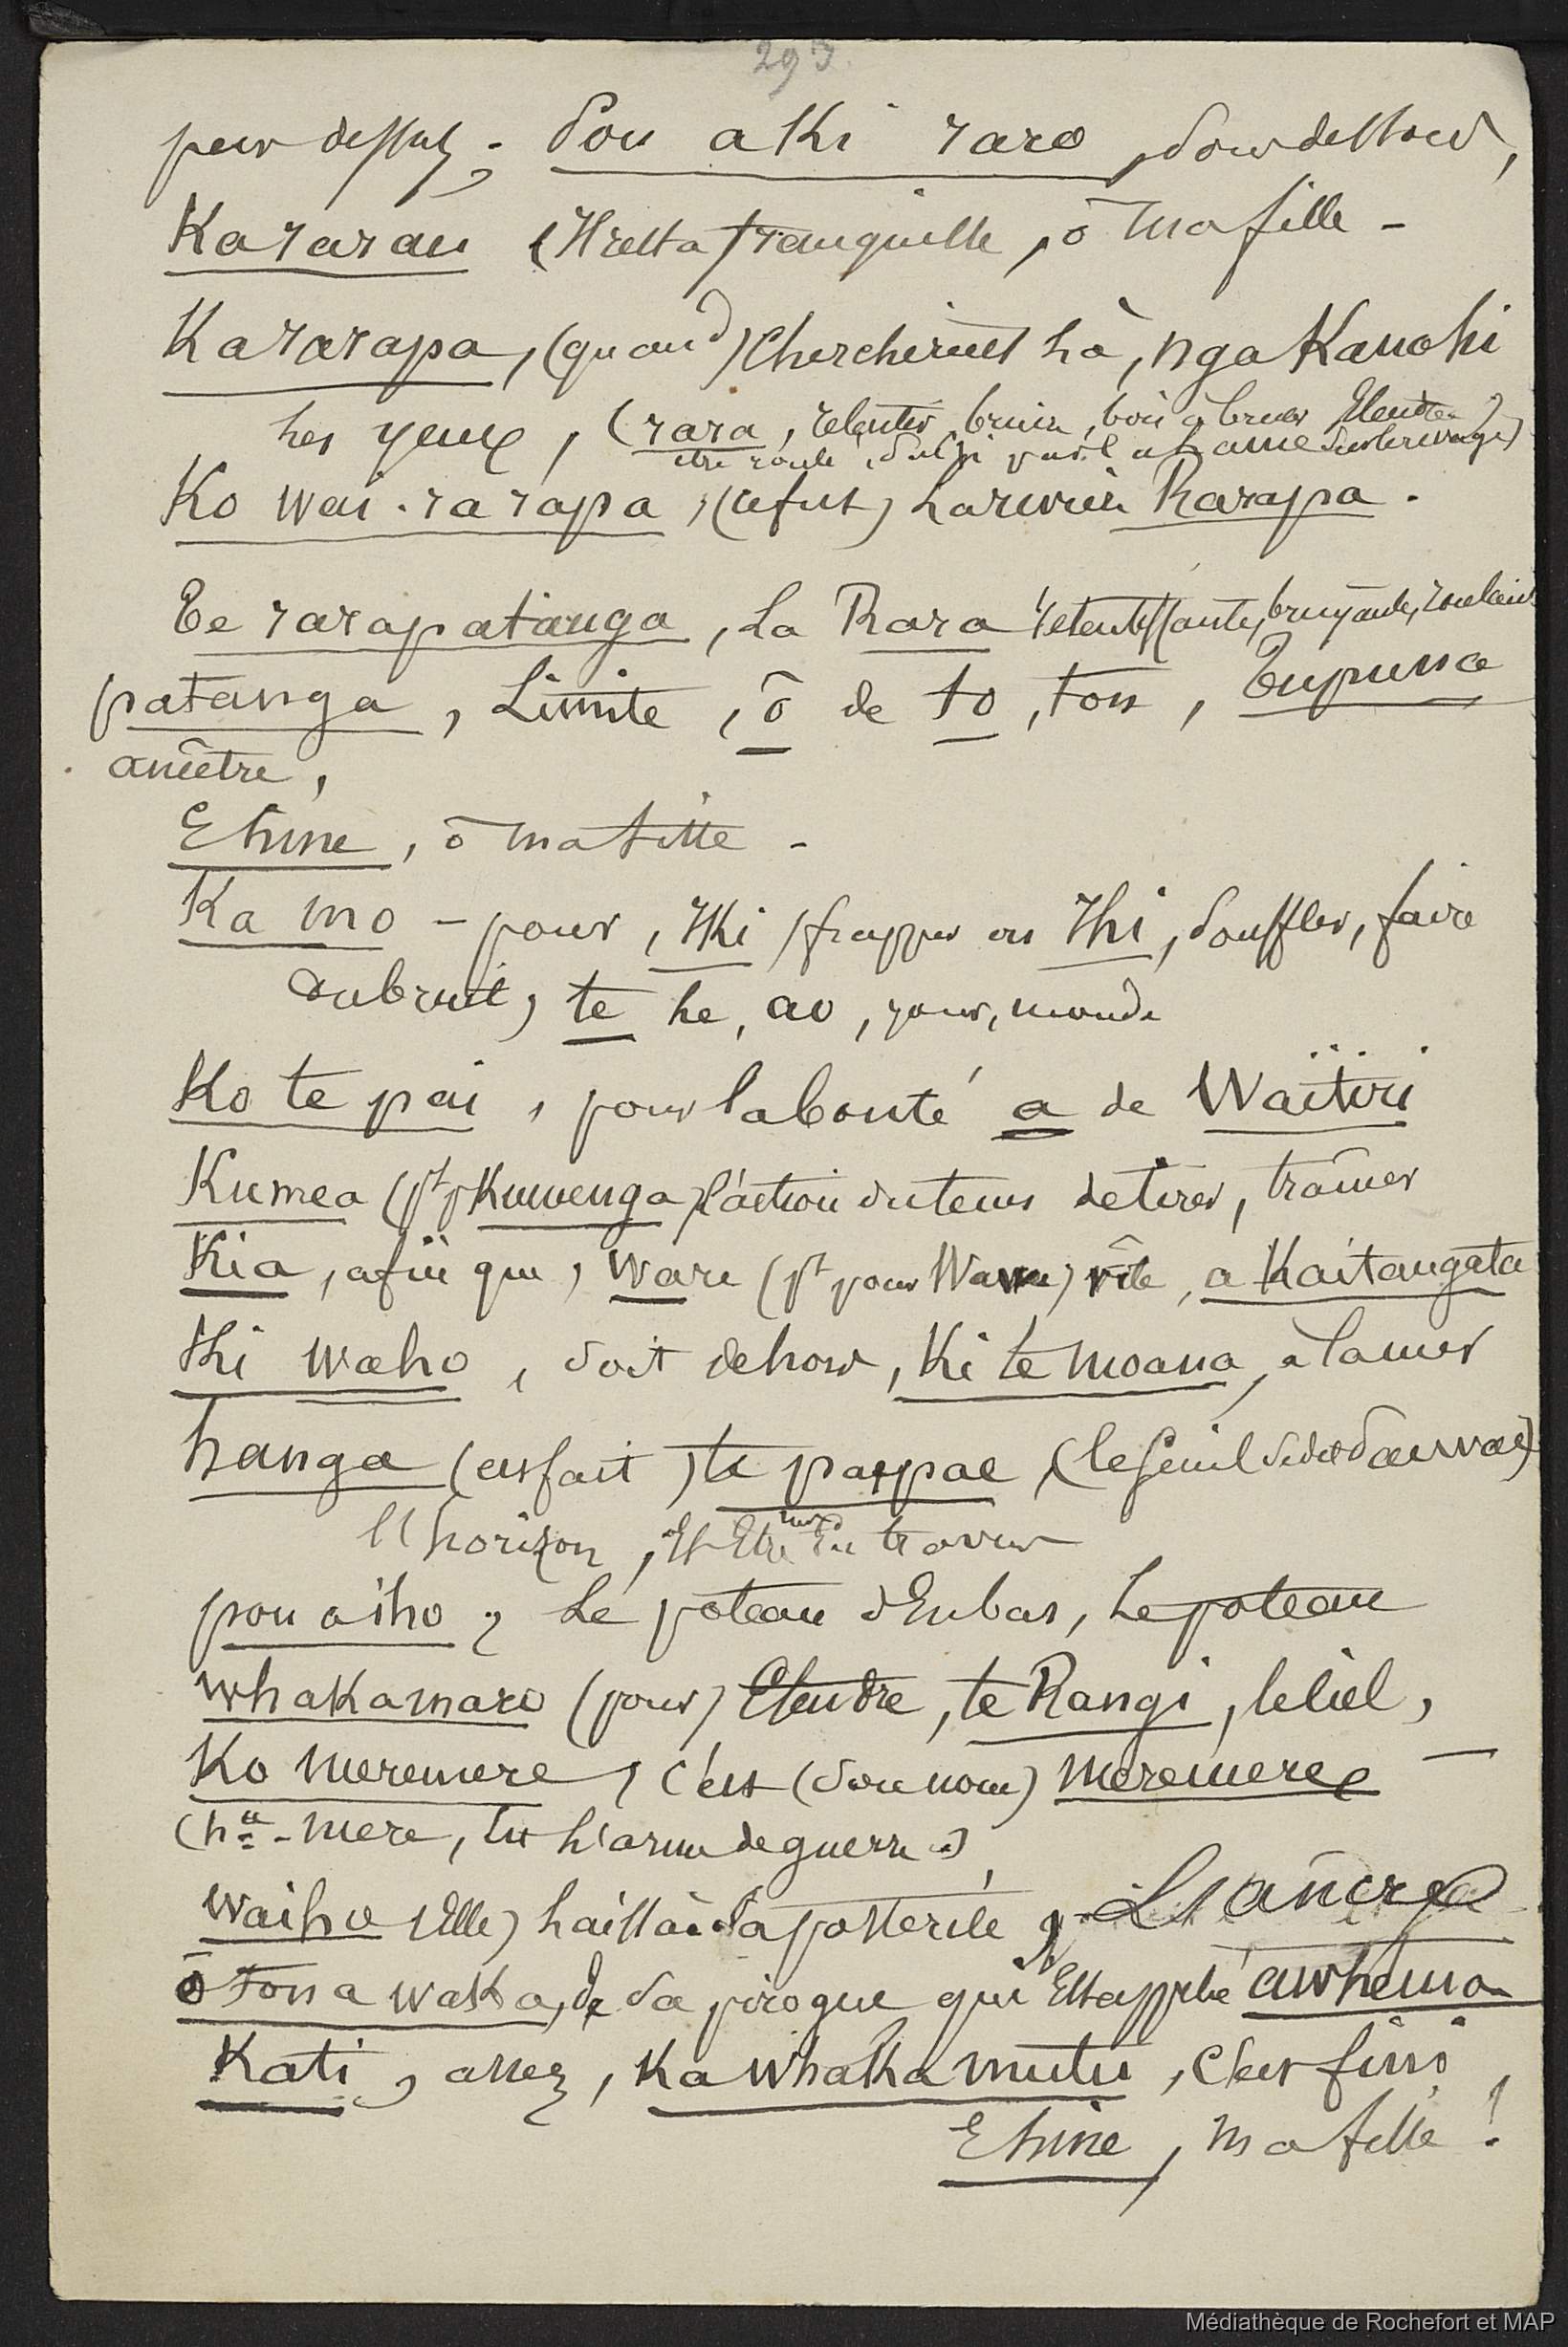 293
par dessus ; Pou aki raro, sous dessous,
Kararau (Il resta) tranquille, ô ma fille -
Kararapa, (quand) cherchèrent là, nga Kanohi
les yeux, (rara, retentir, bruire, bois à bruler Etendre
être roulé
Ko wai. rarapa, (ce fut) La rivière Rarapa.
Te rarapatanga, La Rara retentissante, bruyante, roulant
patanga, Limite, ō de to, ton, Tupuna
ancêtre,
E hine, ô ma fille -
Ka mo - pour, Ihi, frapper ou Ihi, souffler, faire
du bruit, te le, ao, jour, monde
Ko te pai, pour la bonté a de Waïtiri
Kumea (pt p Kumenga) l'action du tems de tirer, traîner
Kia, afin que, ware (pt pour Wawe) vite, a Kaitangata
Ki waho, soit dehors, Ki te moana, a la mer
hanga (est fait) te paepae (le seuil
l'horizon, Et Etre en travers
pou aiho, Le poteau d'En bas, Le poteau
whakamaro (pour) Etendre, te Rangi, le Ciel,
Ko meremere, C'est (son nom) meremere
(na - mere, tu L'arme de guerre)
waiho (Elle) laissa à sa postérité, L'ancre
ō tona waka, de sa pirogue qui Est appelée awhema
Kati, assez, Ka whakamutu, c'est fini
E hine, ma fille !
Médiathèque de Rochefort et MAP